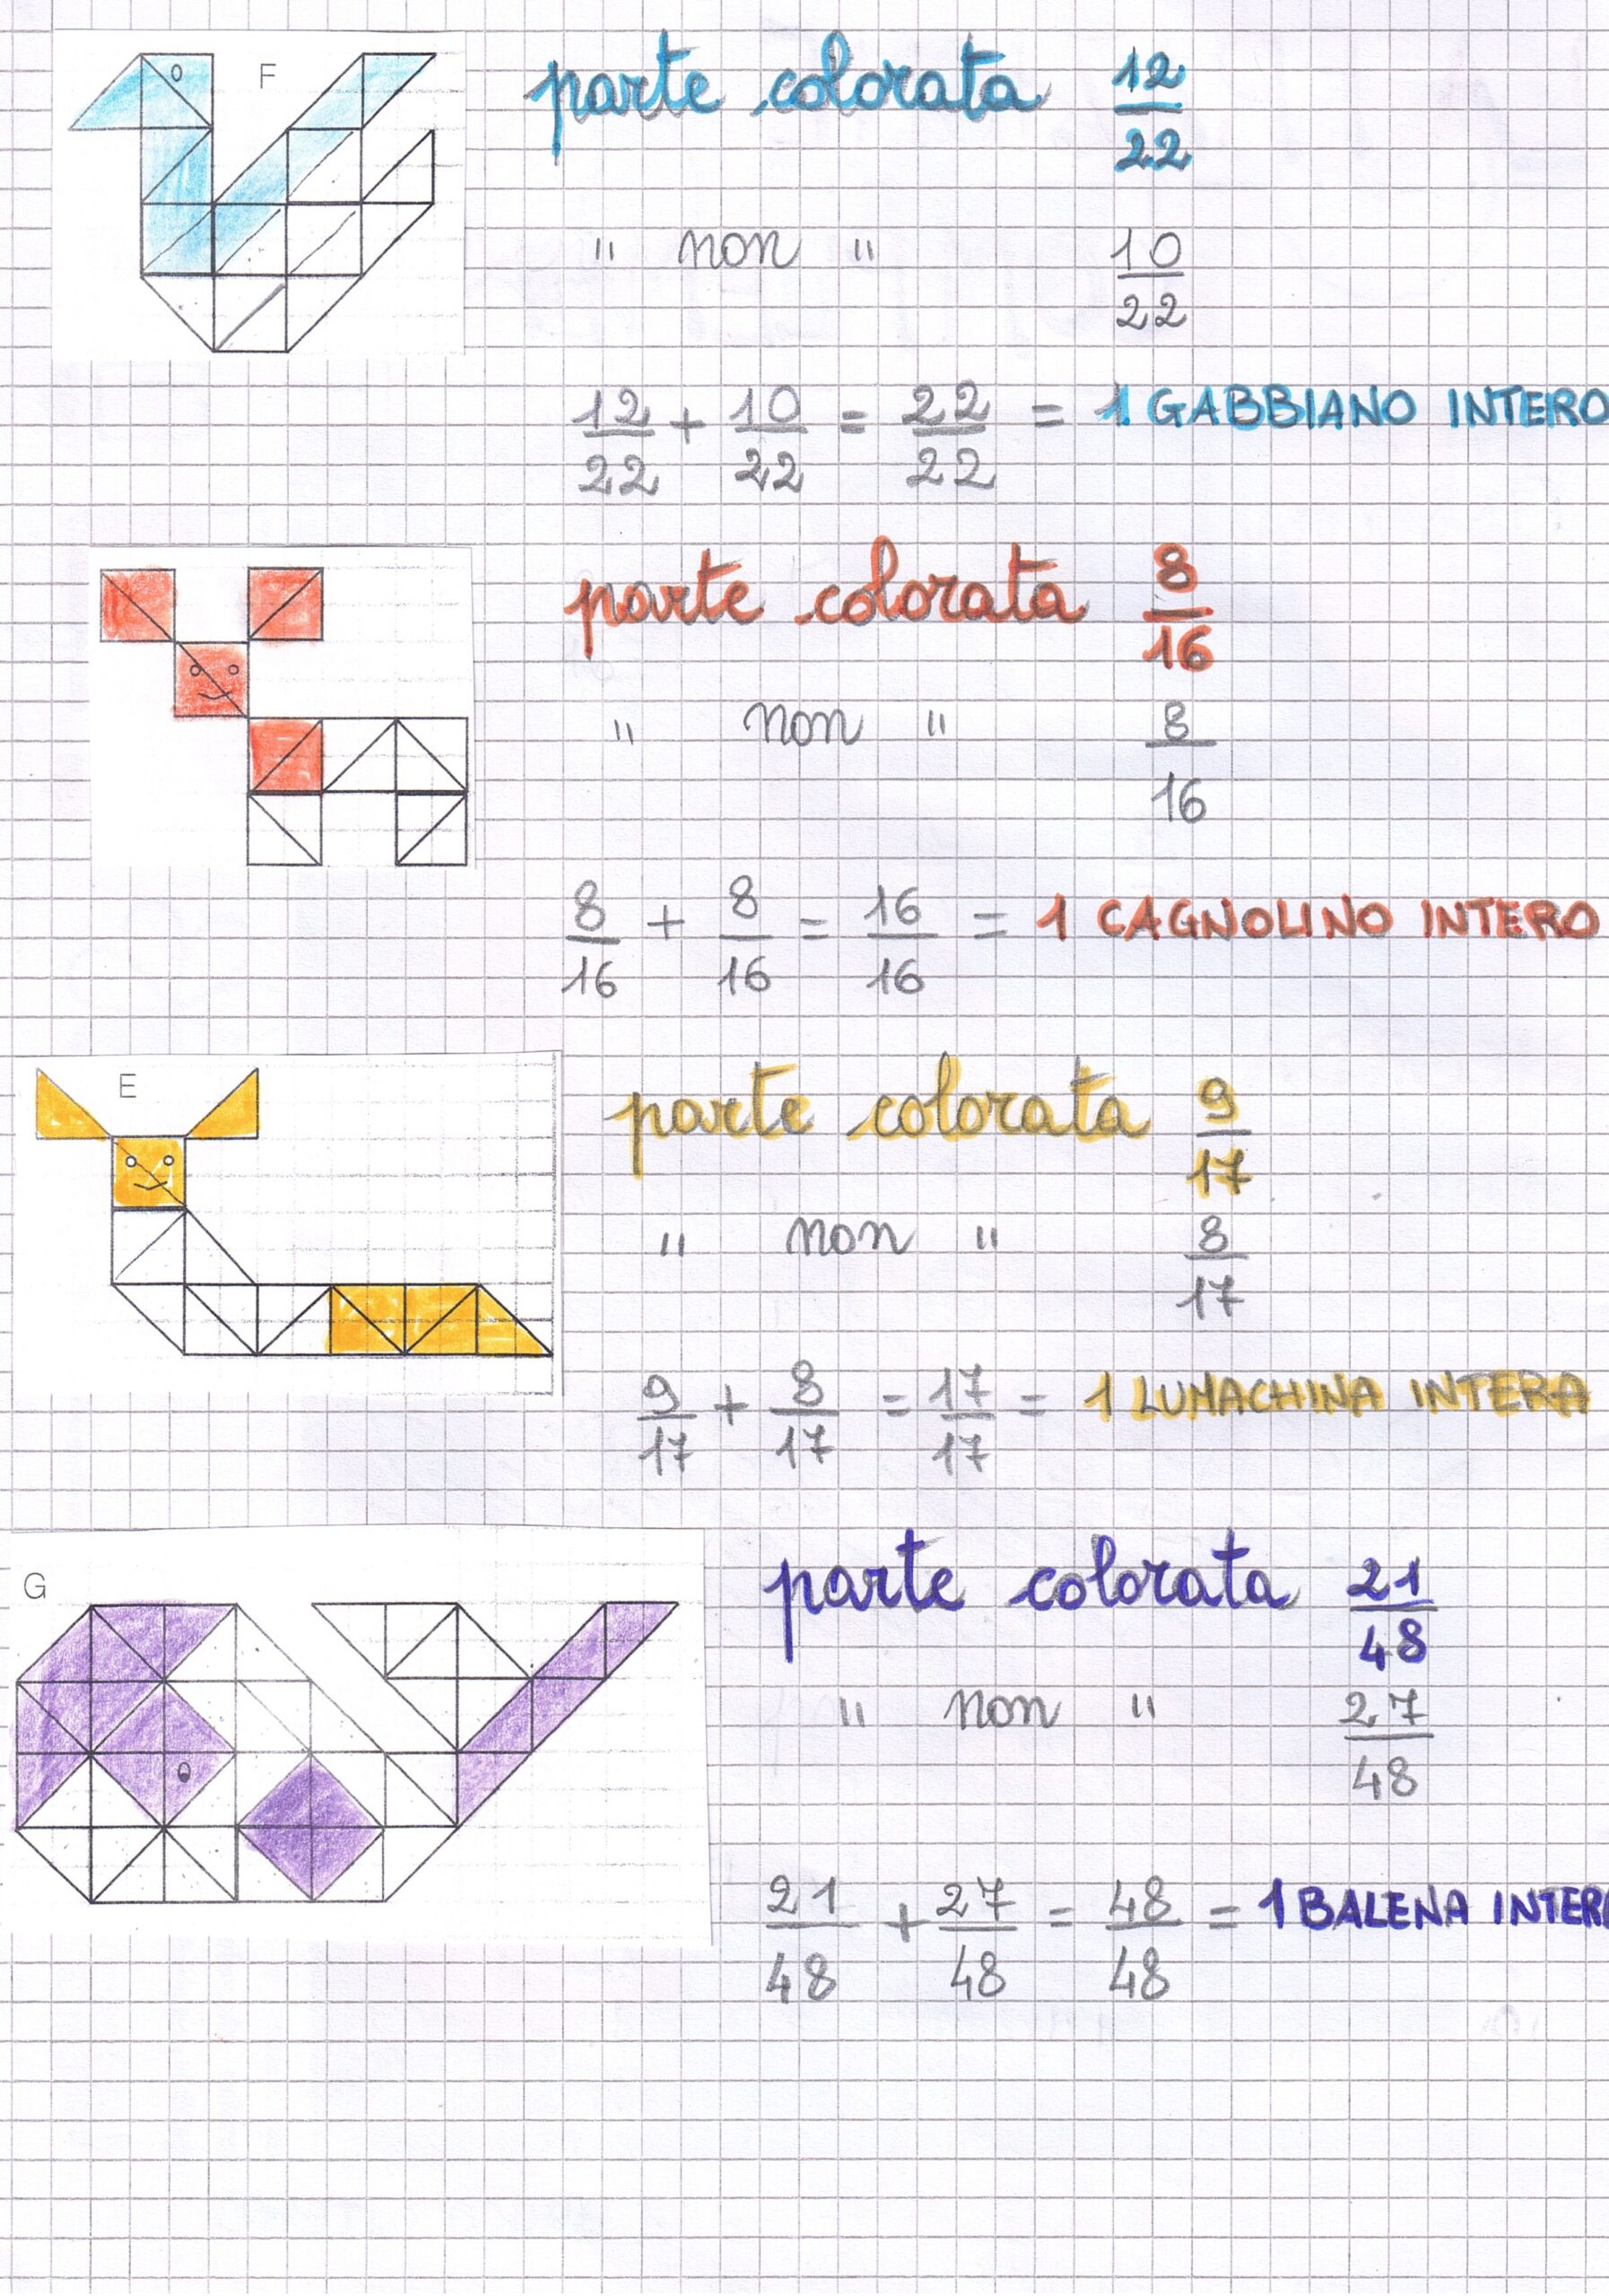 F
parte colorata 12/22
" non " 10/22
12/22 + 10/22 = 22/22 = 1 GABBIANO INTERO
parte colorata 8/16
" non " 8/16
8/16 + 8/16 = 16/16 = 1 CAGNOLINO INTERO
E
parte colorata 9/17
" non " 8/17
9/17 + 8/17 = 17/17 = 1 LUMACHINA INTERA
G
parte colorata 21/48
" non " 27/48
21/48 + 27/48 = 48/48 = 1 BALENA INTER